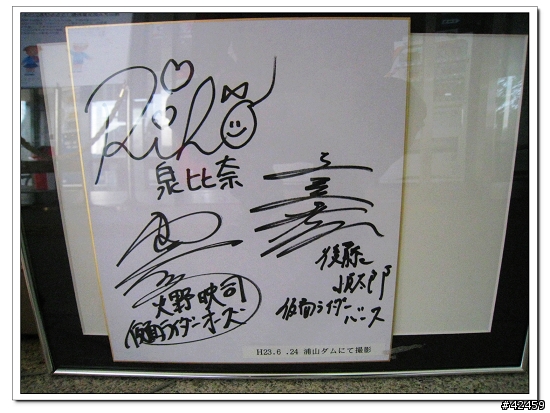 Riho
泉比奈
火野映司
仮面ライダーオーズ
後藤慎太郎
仮面ライダー
バース
H23.6 .24 浦山ダムにて撮影
#42459